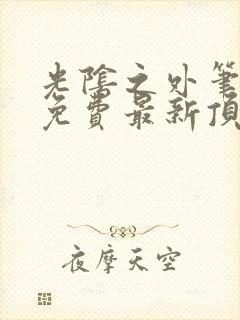 光陰之外筆
免費最新頂
夜摩天空